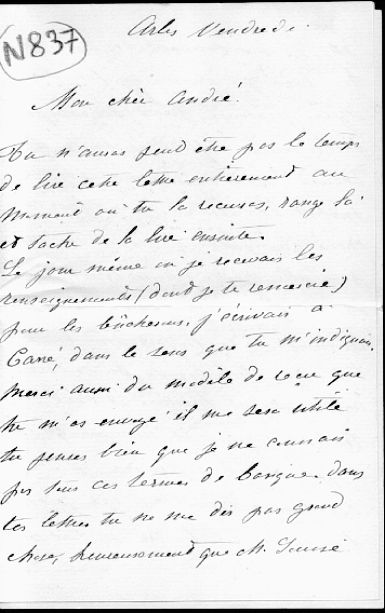 N837
Arles Vendredi.
Mon cher André.
Tu n'auras peut être pas le temps
de lire cette lettre entièrement au
moment où tu la recevras, range la
et tache de la lire ensuite.
Le jour même où je recevais les
renseignements (dont je te remercie)
pour les bûcherons, j'écrivais à
Carré, dans le sens que tu m'indiquais.
Merci aussi du modèle de reçu que
tu m'as envoyé il me sera utile
tu penses bien que je ne connais
pas tous ces termes de banque. dans
tes lettres tu ne me dis pas grand
chose, heureusement que M.